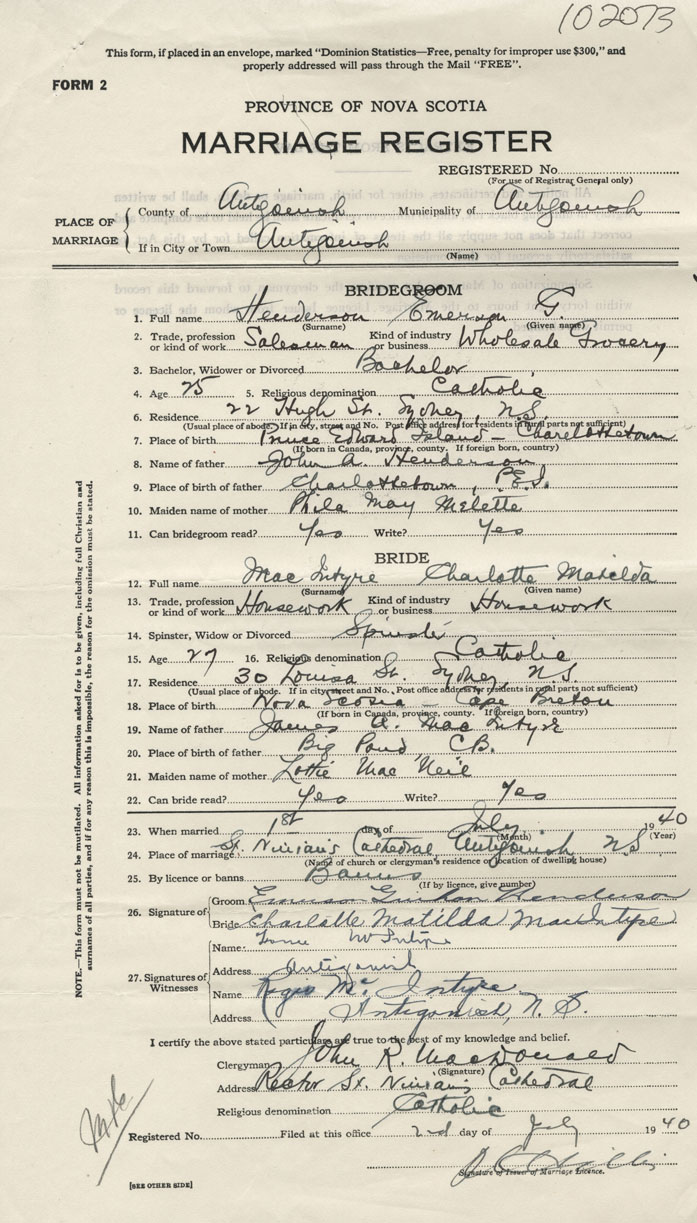 102073
This form, if placed in an envelope, marked "Dominion Statistics—Free, penalty for improper use $300," and
properly addressed will pass through the Mail "FREE".
FORM 2
PROVINCE OF NOVA SCOTIA
MARRIAGE REGISTER
REGISTERED No.
(For use of Registrar General only)
PLACE OF MARRIAGE
County of Antigonish Municipality of Antigonish
If in City or Town Antigonish
(Name)
BRIDEGROOM
1. Full name Henderson Emerson G.
(Surname) (Given name)
2. Trade, profession or kind of work Salesman Kind of industry or business Wholesale Grocery
3. Bachelor, Widower or Divorced Bachelor
4. Age 25 5. Religious denomination Catholic
6. Residence 22 Hugh St. Sydney, N.S.
(Usual place of abode. If in city, street and No. Post office address for residents in rural parts not sufficient)
7. Place of birth Prince Edward Island - Charlottetown
(If born in Canada, province, county. If foreign born, country)
8. Name of father John A. Henderson
9. Place of birth of father Charlottetown, P.E.I.
10. Maiden name of mother Phila May Melette
11. Can bridegroom read? Yes Write? Yes
BRIDE
12. Full name Mac Intyre Charlotte Matilda
(Surname) (Given name)
13. Trade, profession or kind of work Housework Kind of industry or business Housework
14. Spinster, Widow or Divorced Spinster
15. Age 27 16. Religious denomination Catholic
17. Residence 30 Louisa St. Sydney, N.S.
(Usual place of abode. If in city street and No. Post office address for residents in rural parts not sufficient)
18. Place of birth Nova Scotia - Cape Breton
(If born in Canada, province, county. If foreign born, country)
19. Name of father James A. Mac Intyre
20. Place of birth of father Big Pond, C.B.
21. Maiden name of mother Lottie Mac Neil
22. Can bride read? Yes Write? Yes
23. When married 1st day of July 1940
(Month) (Year)
24. Place of marriage St. Ninian's Cathedral Antigonish N.S
(Name of church or clergyman's residence or location of dwelling house)
25. By licence or banns Banns
(If by licence, give number)
26. Signature of
Groom Emerson Henderson
Bride Charlotte Matilda MacIntyre
27. Signatures of Witnesses
Name McIntyre
Address Antigonish
Name Mc Intyre
Address Antigonish, N. S.
I certify the above stated particulars are true to the best of my knowledge and belief.
Clergyman John R. MacDonald
(Signature)
Address Rector St. Ninian's Cathedral
Religious denomination Catholic
Registered No. Filed at this office 2nd day of July 1940
Signature of Issuer of Marriage Licence.
[SEE OTHER SIDE]
NOTE.—This form must not be mutilated. All information asked for is to be given, including full Christian and
surnames of all parties, and if for any reason this is impossible, the reason for the omission must be stated.